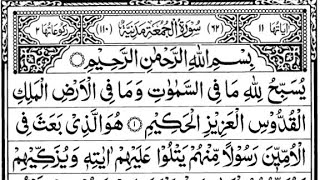 اٰیَاتُهَا ١١ (٦٢) سُوْرَةُ الْجُمُعَةِ مَدَنِیَّةٌ (١١٠) رُكُوْعَاتُهَا ٢
بِسْمِ اللّٰهِ الرَّحْمٰنِ الرَّحِیْمِ
یُسَبِّحُ لِلّٰهِ مَا فِی السَّمٰوٰتِ وَمَا فِی الْاَرْضِ الْمَلِكِ
الْقُدُّوْسِ الْعَزِیْزِ الْحَكِیْمِ ١ هُوَ الَّذِیْ بَعَثَ فِی
الْاُمِّیّٖنَ رَسُوْلًا مِّنْهُمْ یَتْلُوْا عَلَیْهِمْ اٰیٰتِهٖ وَیُزَكِّیْهِمْ